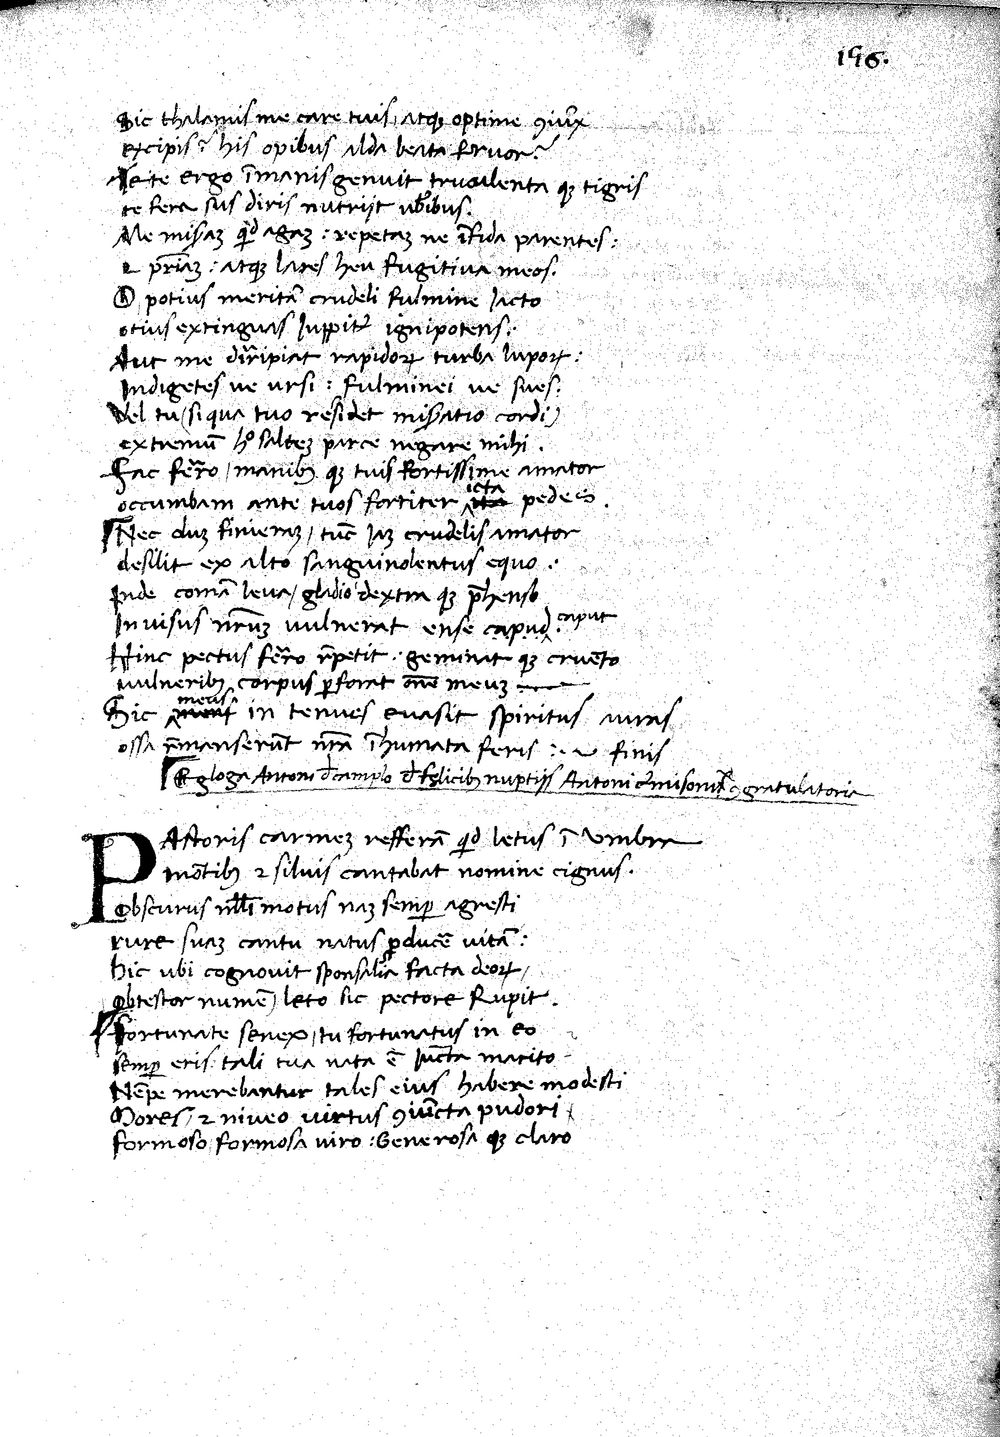 156.
Sic thalamis me care tuis, atqꝫ optime ꝯiūx
excipis? his opibus alda beata fruor?
Te te ergo īmanis genuit truculenta qꝫ tigris
te fera sus diris nutrijt ubībus.
Me misaꝫ qd agaꝫ : repetaꝫ ne īfida parentes :
⁊ priāꝫ : atqꝫ lares heu fugitiva meos.
O potius meritā crudeli fulmine Jacto
otius extinguas Juppitꝰ ignipotens :
Aut me diripiat rapidoꝝ turba lupoꝝ :
Indigetes ue ursi : fulminei ue sues :
Vel tu (si qua tuo residet misatio cordi)
extremū hº salteꝫ parce negare mihi .
Fac fēro, manibꝫ qꝫ tuis fortissime amator
occumbam ante tuos fortiter icta pedes .
Nec duꝫ finieraꝫ, tūc Jaꝫ crudelis amator
desilit ex alto sanguinolentus equo .
Inde comā leua, gladio dextra qꝫ p̄henso
Invisus nr̄uꝫ uulnerat ense capud. caput
Hinc pectus fēro r̄petit . geminat qꝫ cruēto
uulneribꝫ corpus ꝑforat om̄e meuꝫ
Sic meus in tenues euasit spiritus auras
ossa r̄manserūt nr̄a īhumata feris : finis
Egloga Antoni d̄ campo d̄ felicibꝫ nuptijs Antoni ꝯgratulatoria
PAstoris carmeꝫ refferā qd letus ī umbra
mōtibꝫ ⁊ siluis cantabat nomine cignus.
Obscurus nlli motus naꝫ semꝑ agresti
rure suaꝫ cantu natus ꝓducē vitā :
hic ubi cognovit sponsalia facta deoꝝ,
obtestor numē) leto sic pectore Rupit .
Fortunate senex, tu fortunatus in eo
semꝑ eris : tali tua nata ē Jūcta marito
Nēpe merebantur tales eius habere modesti
Mores, ⁊ niueo virtus ꝯiūcta pudori
formoso formosa uiro : Generosa qꝫ claro